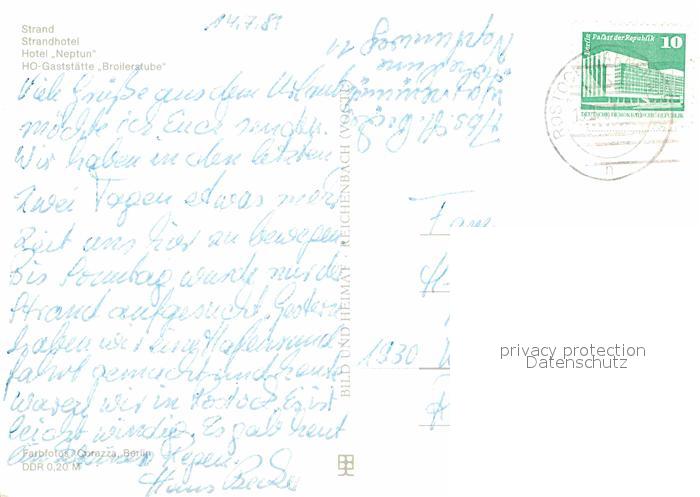 14.7.81
Strand
Strandhotel
Hotel „Neptun"
HO-Gaststätte „Broilerstube"
Viele Grüße aus dem Urlaub
möchte ich Euch senden.
Wir haben in den letzten
zwei Tagen etwas mehr
Zeit uns hier zu bewegen
Bis Sonntag wurde nur der
Strand aufgesucht. Gestern
haben wir eine Hafenrund
fahrt gemacht und heute
waren wir in Rostock. Es ist
leicht windig. Es gab heut
Regen.
Hans
Farbfotos: Corazza, Berlin
DDR 0,20 M
BILD UND HEIMAT · REICHENBACH (VOGTL)
Neptunweg 11
Berlin Palast der Republik 10
DEUTSCHE DEMOKRATISCHE REPUBLIK
ROSTOCK
n
Fam
1930
privacy protection
Datenschutz